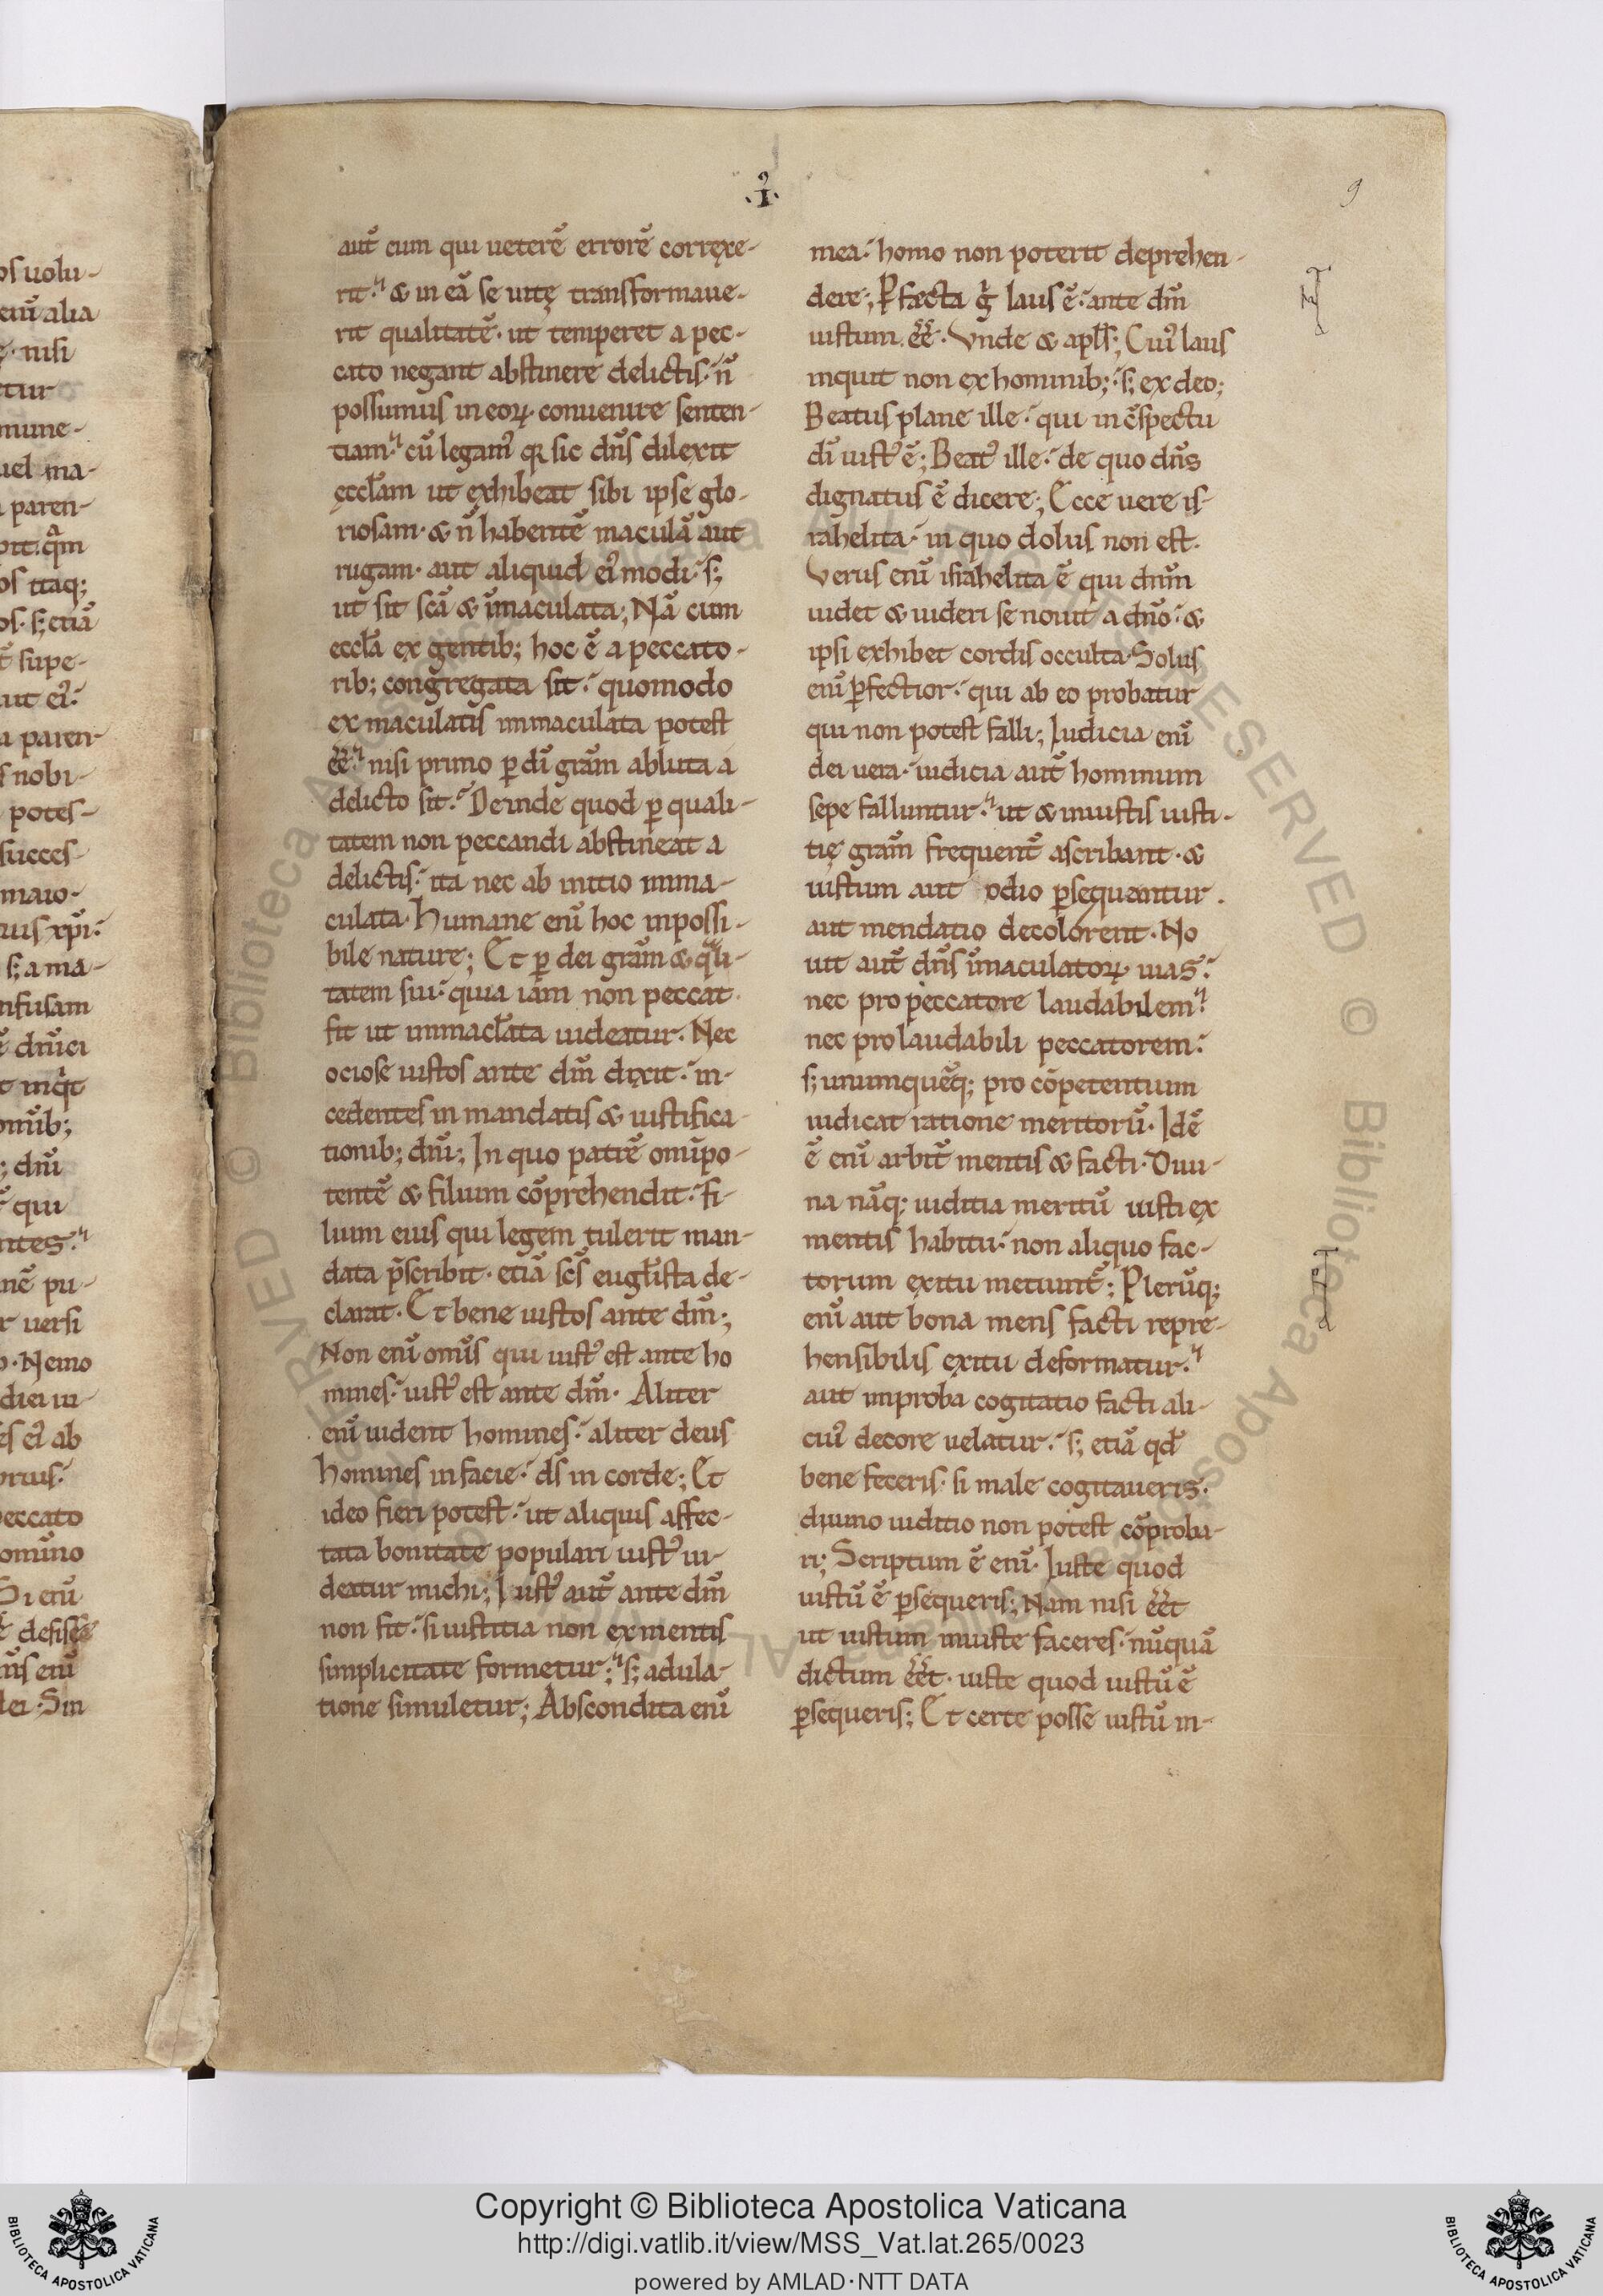 .I.
9
aut̄ cum qui ueterē errorē corręxe-
rit. & in eā se uitę transformaue-
rit qualitatē. ut temperet a pec-
cato negant abstinere delictis. n̄
possumus in eoꝝ conuenire senten-
tiam. cū legam' qꝛ sic dn̄s dilexit
ęccl̄am ut exhibeat sibi ipse glo-
riosam. & n̄ habentē maculā aut
rugam. aut aliquid ei' modi. s;
ut sit scā & īmaculata; Nā cum
eccl̄a ex gentib; hoc ē a peccato-
rib; congregata sit. quomodo
ex maculatis immaculata potest
ēē. nisi primo ꝑ dī grām abluta a
delicto sit. Deinde quod ꝑ quali-
tatem non peccandi abstineat a
delictis. ita nec ab initio imma-
culata. Humane enī hoc inpossi-
bile nature; Et ꝑ dei grām & qli-
tatem sui. quia iam non peccat.
fit ut immacl̄ata uideatur. Nec
ociose iustos ante dm̄ dixit. in-
cedentes in mandatis & iustifica-
tionib; dn̄i; In quo patrē omīpo-
tentē & filium cōprehendit. fi-
lium eius qui legem tulerit man-
data p̄scribit. etiā scs̄ eugl̄ista de-
clarat. Et bene iustos ante dm̄;
Non enī omīs qui iust' est ante ho
mines. iust' est ante dm̄. Aliter
enī uident homines. aliter deus
homines in facie. ds̄ in corde; Et
ideo fieri potest. ut aliquis affec-
tata bonitate populari iust' ui-
deatur michi; Iust' aut̄ ante dm̄
non sit. si iustitia non ex mentis
simplicitate formetur; s; adula-
tione simuletur; Abscondita enī
mea. homo non poterit deprehen-
dere; Ꝑfęcta g̃ laus ē. ante dm̄
iustum ēē. Vnde & apl̄s; Cui' laus
inquit non ex hominib;. s; ex deo;
Beatus plane ille. qui in c̄spectu
dī iust' ē; Beat' ille. de quo dn̄s
dignatus ē dicere; Ecce uere is-
rahelita. in quo dolus non est.
Verus enī israhelita ē qui dnm̄
uidet & uideri se nouit a dn̄o. &
ipsi exhibet cordis occulta. Solus
enī ꝑfectior. qui ab eo probatur
qui non potest falli; Iudicia enī
dei uera. iudicia aut̄ hominum
sepe falluntur. ut & iniustis iusti-
tię grām frequent̄ ascribant. &
iustum aut odio ꝑsequantur.
aut mendatio decolorent. No
uit aut̄ dn̄s īmaculatoꝝ uias.
nec pro peccatore laudabilem
nec pro laudabili peccatorem.
s; unumquēq; pro cōpetentium
iudicat ratione meritorū. Idē
ē enī arbit̄ mentis & facti. Diui-
na nāq; iuditia meritū iusti ex
mentis habitu. non aliquo fac-
torum exitu metiunt̄; Plerūq;
enī aut bona mens facti repre-
hensibilis exitu deformatur.
aut improba cogitatio facti ali-
cui' decore uelatur. s; etiā qd̄
bene feceris. si male cogitaueris.
diuino iuditio non potest cōproba-
ri; Scriptum ē enī. Iuste quod
iustū ē ꝑsequeris; Nam nisi ēēt
ut iustum iniuste faceres. nūquā
dictum ēēt. iuste quod iustū ē
ꝑsequeris; Et certe posse iustū in-
os uolu-
enī alia
nisi
mune-
uel ma-
paren-
os itaq;
os. s; etiā
supe-
paren-
nobi-
potes-
succes-
maio-
uis xp̄i.
s; a ma-
nfusam
dnīci
t inqt
omīb;
; dnī
qui
ntes.
pu-
uersi
Nemo
ei' ab
peccato
omīno
Si enī
enī
dei. Sin
Copyright © Biblioteca Apostolica Vaticana
http://digi.vatlib.it/view/MSS_Vat.lat.265/0023
powered by AMLAD·NTT DATA
BIBLIOTECA APOSTOLICA VATICANA
BIBLIOTECA APOSTOLICA VATICANA